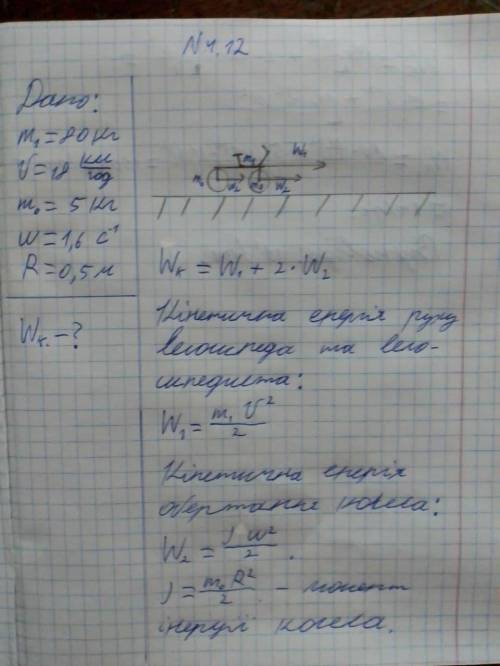 N 4.12
Дано:
m₁ = 80 кг
V = 18 км/год
m₀ = 5 кг
w = 1,6 c⁻¹
R = 0,5 м
Wк. - ?
m₁ W₁
m₀ W₂ m₀ W₂
Wк = W₁ + 2 · W₂
Кінетична енергія руху
велосипеда та вело-
сипедиста:
W₁ = m₁ V² / 2
Кінетична енергія
обертання колеса:
W₂ = J w² / 2 .
J = m₀ R² / 2 - момент
інерції колеса.